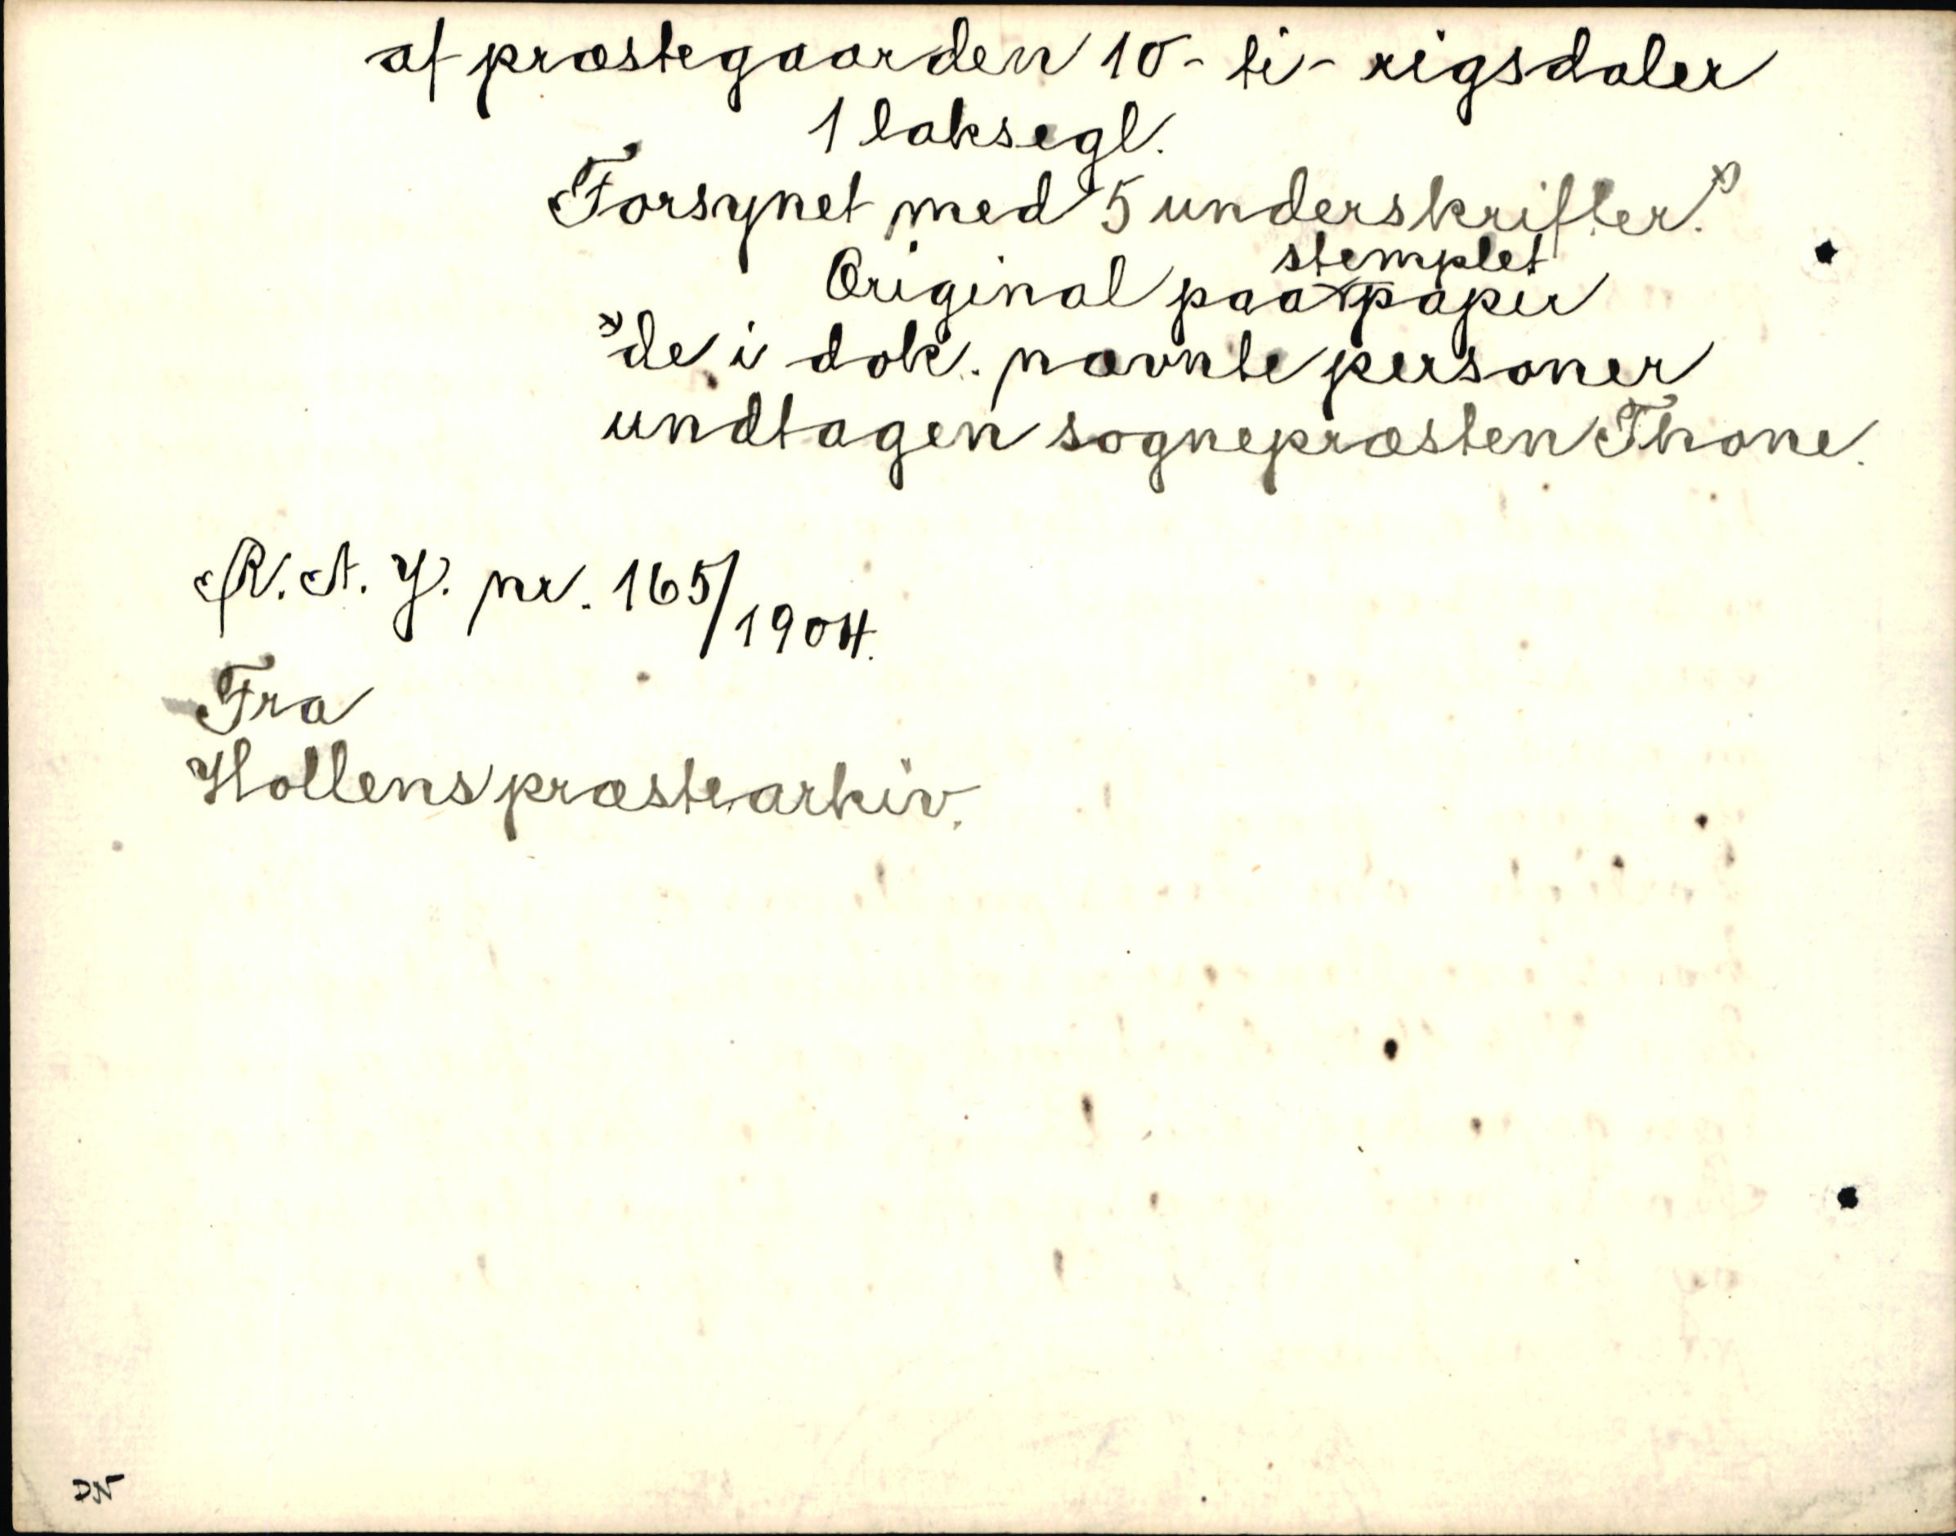 af præstegaarden 10 - ti - rigsdaler
1 laksegl.
Forsynet med 5 underskrifter. x)
Original paa stemplet papir
x) de i dok. nævnte personer
undtagen sognepræsten Thone.
R. A. J. nr. 165/1904.
Fra
Hollens præstearkiv.
DN